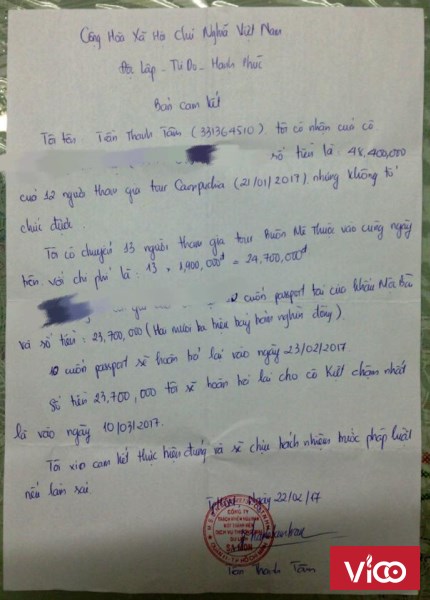 Cộng Hoà Xã Hội Chủ Nghĩa Việt Nam
Độc Lập - Tự Do - Hạnh Phúc
Bản cam kết
Tôi tên: Trần Thanh Tâm (331364510). tôi có nhận của cô
số tiền là: 48,400,000
của 12 người tham gia tour Campuchia (21/01/2017) nhưng không tổ
chức được.
Tôi có chuyển 13 người tham gia tour Buôn Mê Thuôt vào cùng ngày
trên. với chi phí là: 13 x 1,900,000đ = 24,700,000đ
cuốn passport tại cửa khẩu Mộc Bài
và số tiền: 23,700,000 (Hai mươi ba triệu bảy trăm nghìn đồng).
cuốn passport sẽ hoàn trả lại vào ngày 23/02/2017.
Số tiền 23,700,000 tôi sẽ hoàn trả lại cho cô chậm nhất
là vào ngày 10/03/2017.
Tôi xin cam kết thực hiện đúng và sẽ chịu trách nhiệm trước pháp luật
nếu làm sai.
Ngày 22/02/17
CÔNG TY
TRÁCH NHIỆM HỮU HẠN
MỘT THÀNH VIÊN
Trần Thanh Tâm
ViCO